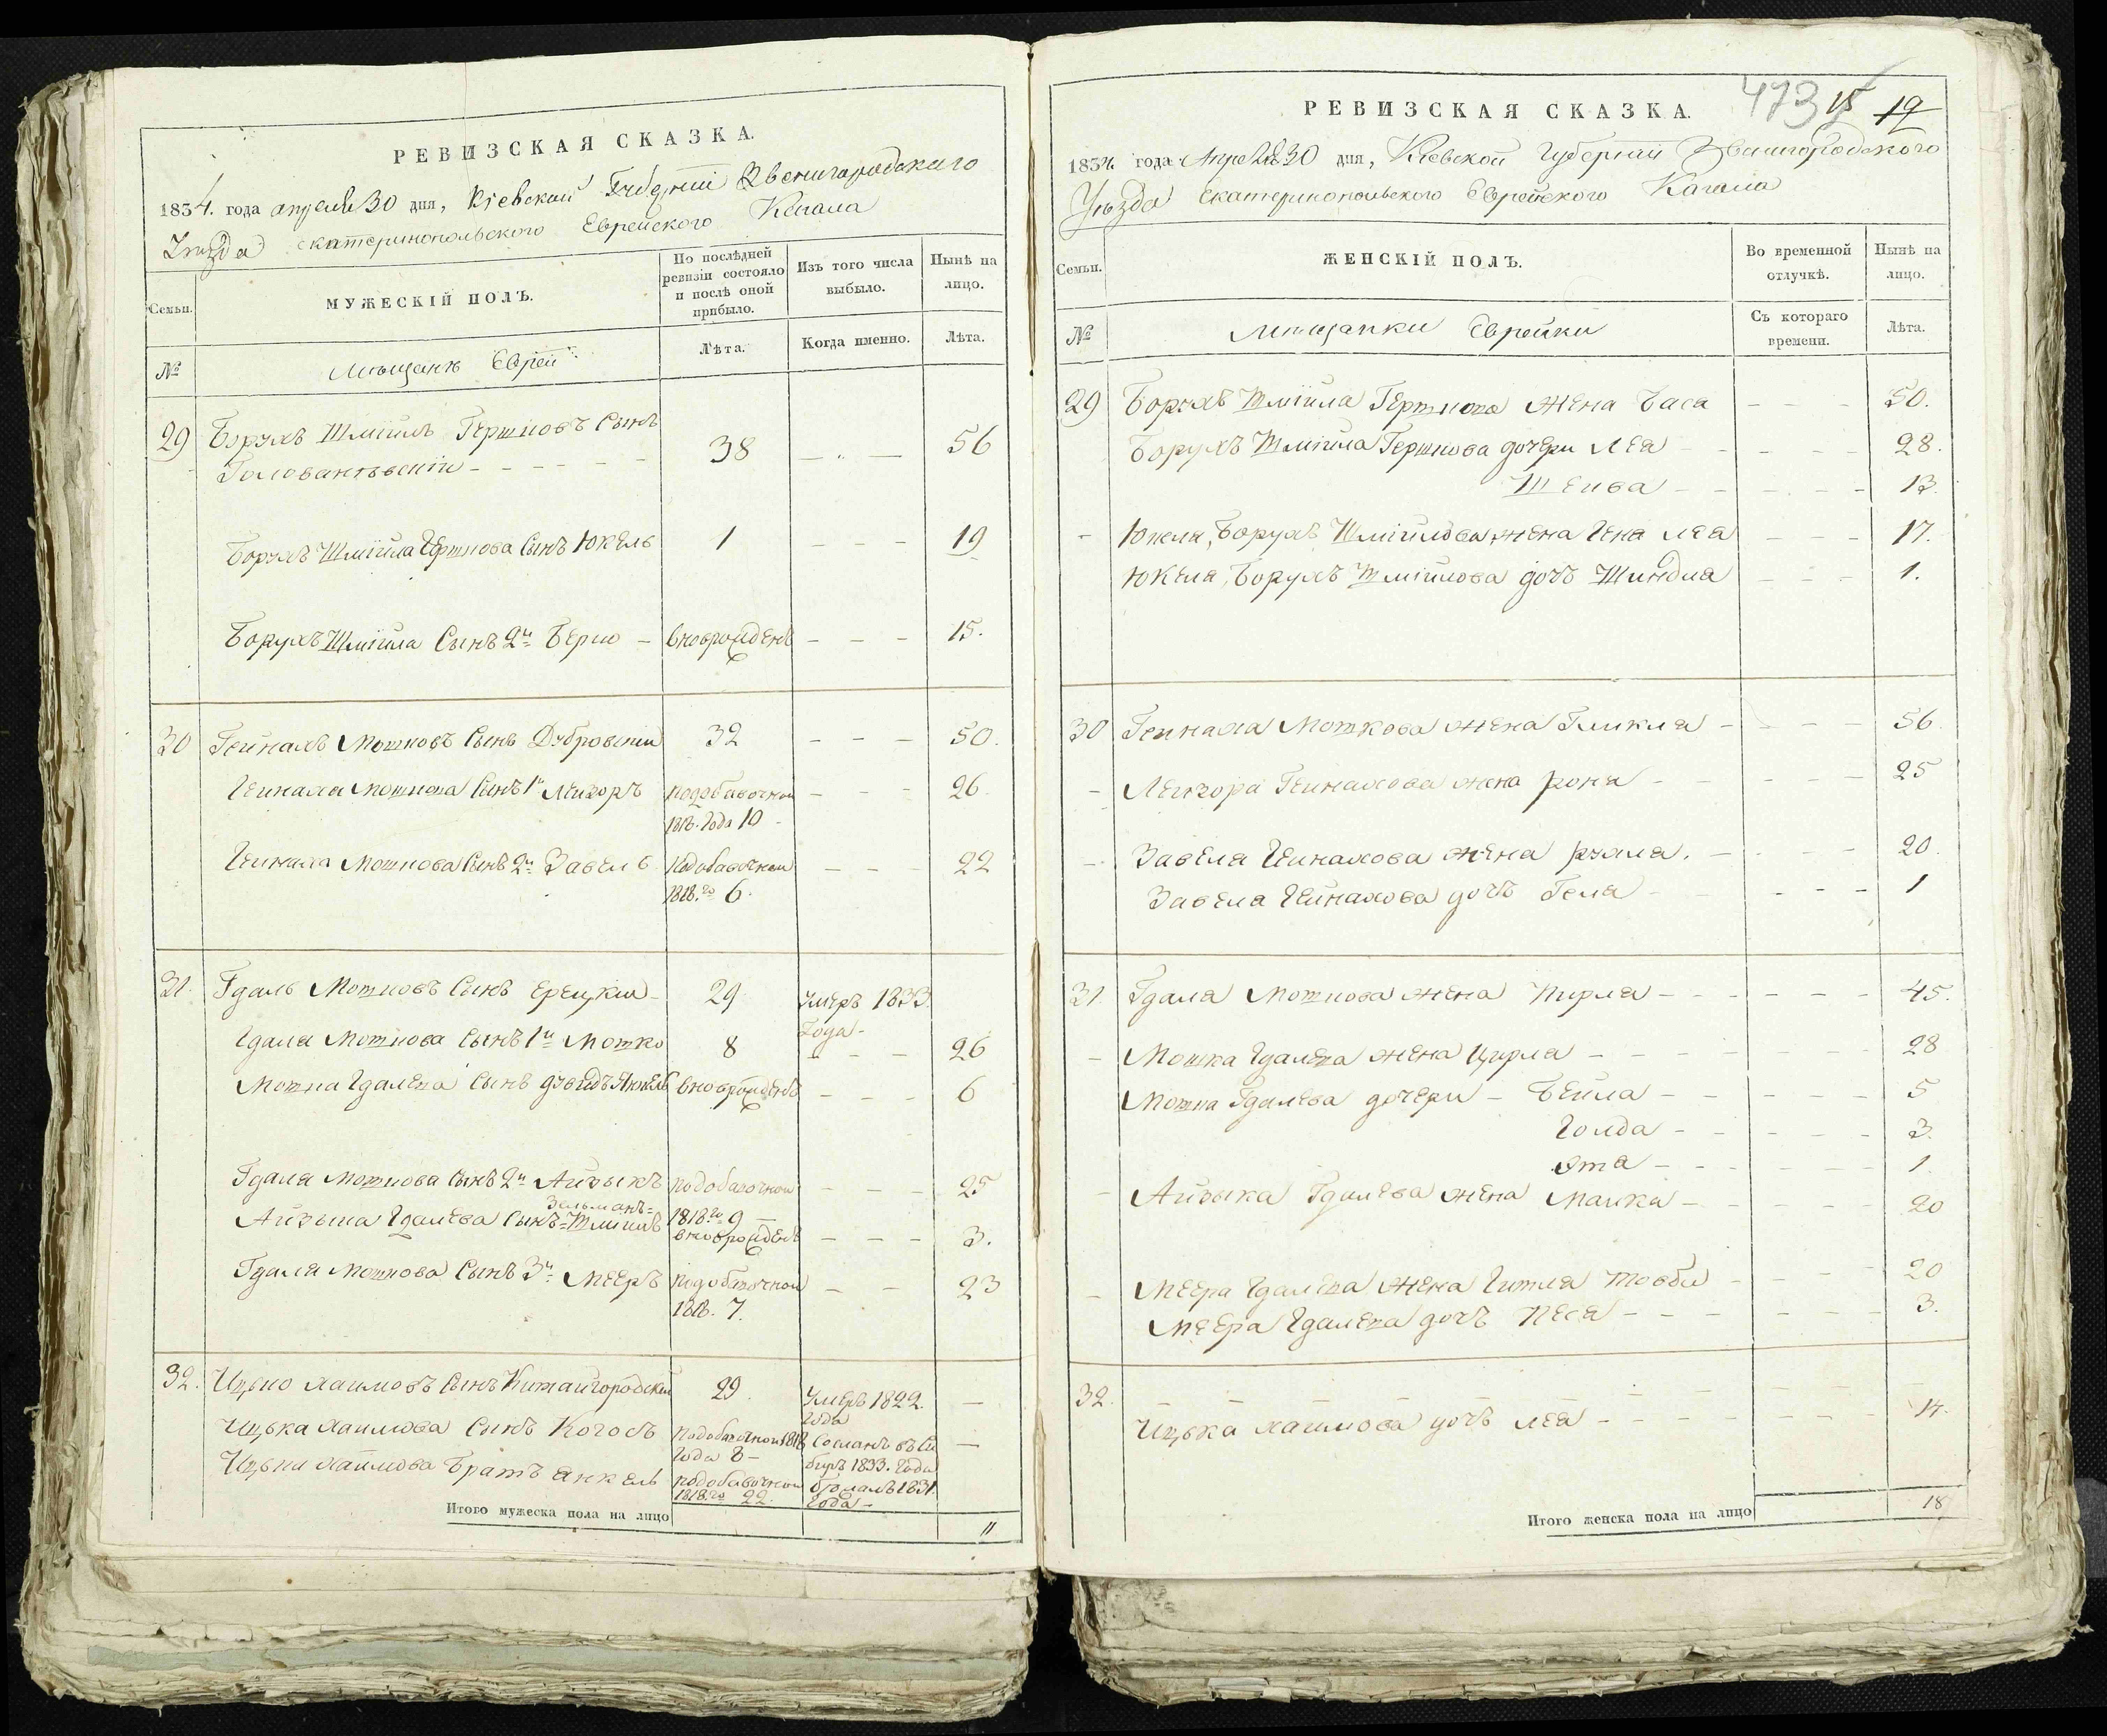 РЕВИЗСКАЯ СКАЗКА.
1834. года апреля 30 дня, Кіевской Губерніи Звенигородскаго
Уѣзда Екатеринопольского Еврейского Кагала
Семьи.
МУЖЕСКІЙ ПОЛЪ.
По послѣдней ревизіи состояло и послѣ оной прибыло.
Изъ того числа выбыло.
Нынѣ на лицо.
№
Мѣщанъ Еврей
Лѣта.
Когда именно.
Лѣта.
29 Борухъ Шмійлъ Гершковъ Сынъ
Голованѣвскій - - - 38 - - - 56
Борухъ Шмійла Гершкова Сынъ Юкель 1 - - - 19
Борухъ Шмійла Сынъ 2й Берко - вноврожденъ - - - 15.
30 Гейнахъ Мошковъ Сынъ Дубровскій 32 - - - 50.
Гейнаха Мошкова Сынъ 1й Лейзоръ подобавочной - - - 26.
1818. года 10 -
Гейнаха Мошкова Сынъ 2й Завель подобавочной - - - 22
1818. го 6.
31. Гдаль Мошковъ Сынъ Ерецкій - 29 умеръ 1833.
года -
Гдаля Мошкова Сынъ 1й Мошко 8 - - - 26
Мошка Гдалева Сынъ Дувидъ Янкель вновро­жденъ - - - 6
Гдаля Мошкова Сынъ 2й Айзыкъ подобавочной - - - 25
Зельманъ=
Айзыка Гдалева Сынъ=Шмійлъ 1818го 9 -
вновро­жденъ - - - 3.
Гдаля Мошкова Сынъ 3й Мееръ подобавочной - - 23
1818. 7.
32. Ицько Хаимовъ Сынъ Китайгородскій 29. умеръ 1822. -
года
Ицька Хаимова Сынъ Когосъ подобавочной 1818 Сосланъ въ Си -
года 8 - биръ 1833. года
Ицька Хаимова Братъ Янкель подобавочной бѣжалъ 1831.
1818го 22. года -
Итого мужеска пола на лицо 11
473 15 19
РЕВИЗСКАЯ СКАЗКА.
1834. года Апреля 30 дня, Кіевской Губерніи Звенигородского
Уѣзда Екатеринопольского Еврейского Кагала
Семьи.
ЖЕНСКІЙ ПОЛЪ.
Во временной отлучкѣ.
Нынѣ на лицо.
№
Мещанки Еврейки
Съ котораго времени.
Лѣта.
29 Борухъ Шмійла Гершкова жена Баса - - - 50.
Борухъ Шмійла Гершкова дочери Лея - - - 28.
Шейва - - - 13.
- Юкеля, Борухъ Шмійлова жена Гена Лея - - - 17.
Юкеля, Борухъ Шмійлова дочъ Шиндля - - - 1.
30 Гейнаха Мошкова жена Гликля - - - 56
- Лейзора Гейнахова жена Роня - - - 25
- Завеля Гейнахова жена Рухля. - - - 20.
Завеля Гейнахова дочъ Геля - - - 1
31 Гдаля Мошкова жена Пирля - - - 45.
- Мошка Гдалева жена Цирля - - - 28
Мошка Гдалева дочери - Бейла - - - 5
Голда - - - 3.
Эта - - - 1.
- Айзыка Гдалева жена Малка - - - 20
- Меера Гдалева жена Гитля Товба - - - 20
Меера Гдалева дочъ Песя - - - 3.
32.
Ицька Хаимова дочъ Лея - - - 14.
Итого женска пола на лицо 18